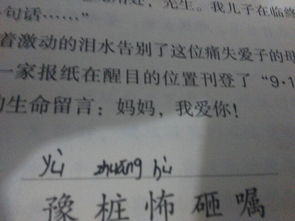 句话……”
着激动的泪水告别了这位痛失爱子的母
一家报纸在醒目的位置刊登了“9·1
的生命留言：妈妈，我爱你！
yù zhuāng bù
豫 桩 怖 砸 嘱